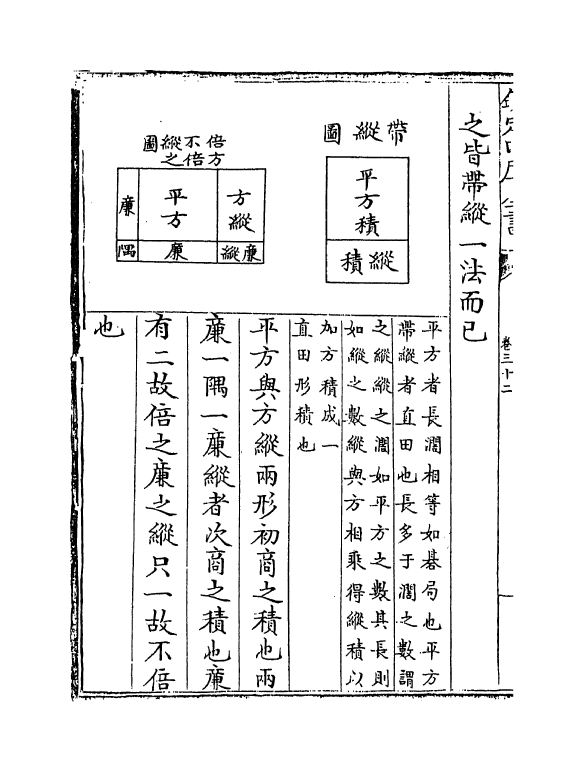 欽定四庫全書
卷三十二
之皆帶縱一法而已
帶縱圖
平方積
縱積
平方者長濶相等如碁局也平方
帶縱者直田也長多于濶之數謂
之縱縱之濶如平方之數其長則
如縱之數縱與方相乘得縱積以
加方積成一
直田形積也
倍方不倍縱之圖
方縱
平方
廉
廉縱
廉
隅
平方與方縱兩形初商之積也兩
廉一隅一廉縱者次商之積也廉
有二故倍之廉之縱只一故不倍
也